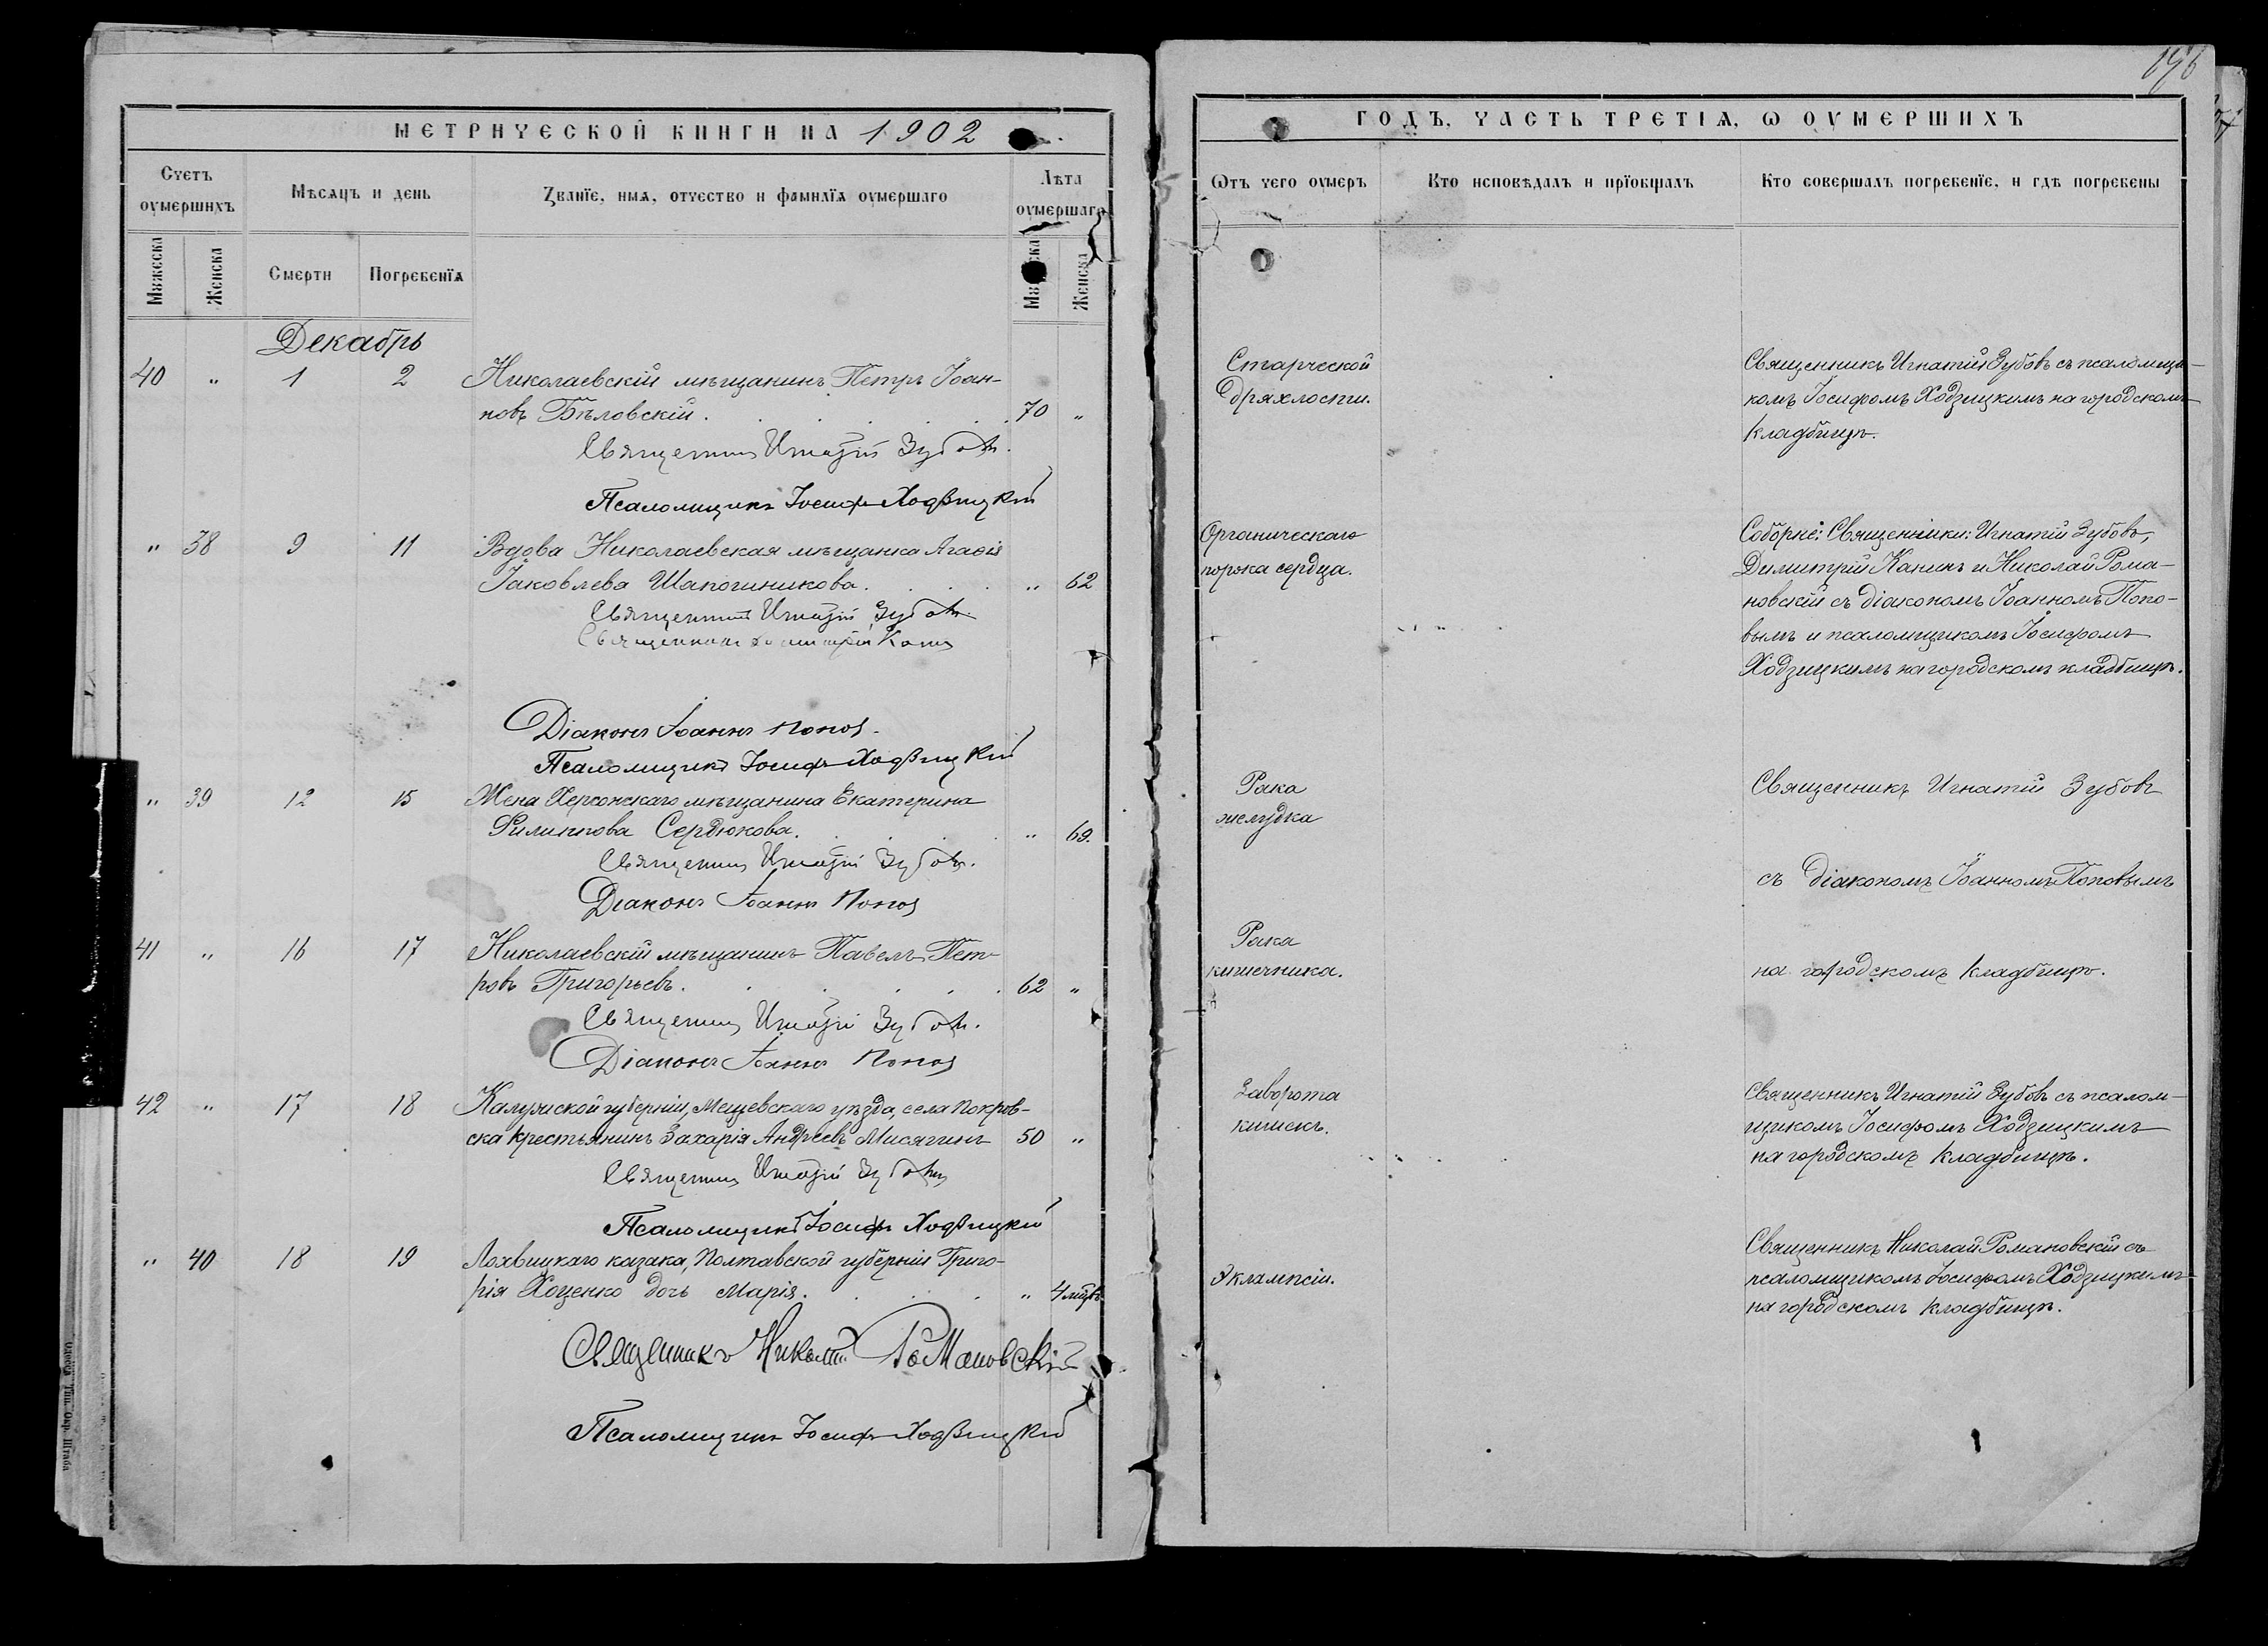 196
МЕТРИЧЕСКОЙ КНИГИ НА 1902
ГОДЪ, ЧАСТЬ ТРЕТІѦ, Ѡ ОУМЕРШИХЪ
Счетъ оумершихъ
Мѣсяцъ и день
Званїе, имѧ, отчество и фамилїѧ оумершаго
Лѣта оумершаго
Ѿтъ чего оумеръ
Кто исповѣдалъ и прїобщалъ
Кто совершалъ погребенїе, и гдѣ погребены
Мужеска
Женска
Смерти
Погребенїѧ
Женска
Декабрь
40 " 1 2 Николаевскій мѣщанинъ Петръ Іоан-
новъ Бѣловскій. 70 "
Священникъ Игнатій Зубовъ.
Псаломщикъ Іосифъ Ходзицкій
Старческой
дряхлости.
Священникъ Игнатій Зубовъ съ псаломщи-
комъ Іосифомъ Ходзицкимъ на городскомъ
кладбищѣ.
" 38 9 11 Вдова Николаевская мѣщанка Агаѳія
Іаковлева Шапошникова. " 62
Священникъ Игнатій Зубовъ
Священникъ Димитрій Канинъ
Діаконъ Іоаннъ Поповъ.
Псаломщикъ Іосифъ Ходзицкій
Органическаго
порока сердца.
Соборне: Священники: Игнатій Зубовъ,
Димитрій Канинъ и Николай Рома-
новскій съ діакономъ Іоанномъ Попо-
вымъ и псаломщикомъ Іосифомъ
Ходзицкимъ на городскомъ кладбищѣ.
" 39 12 15 Жена Херсонскаго мѣщанина Екатерина
Филиппова Сердюкова. " 69.
Священникъ Игнатій Зубовъ.
Діаконъ Іоаннъ Поповъ
Рака
желудка
Священникъ Игнатій Зубовъ
съ діакономъ Іоанномъ Поповымъ
на городскомъ кладбищѣ.
41 " 16 17 Николаевскій мѣщанинъ Павелъ Пет-
ровъ Григорьевъ. 62 "
Священникъ Игнатій Зубовъ.
Діаконъ Іоаннъ Поповъ
Рака
кишечника.
42 " 17 18 Калужской губерніи, Мещевскаго уѣзда, села Покров-
ска крестьянинъ Захарія Андреевъ Мисягинъ 50 "
Священникъ Игнатій Зубовъ
Псаломщикъ Іосифъ Ходзицкій
Заворота
кишекъ.
Священникъ Игнатій Зубовъ съ псалом-
щикомъ Іосифомъ Ходзицкимъ
на городскомъ кладбищѣ.
" 40 18 19 Лохвицкаго казака, Полтавской губерніи Григо-
рія Хоценко дочь Марія. " 4 мѣс.
Священникъ Николай Романовскій
Псаломщикъ Іосифъ Ходзицкій
Эклампсіи.
Священникъ Николай Романовскій съ
псаломщикомъ Іосифомъ Ходзицкимъ
на городскомъ кладбищѣ.